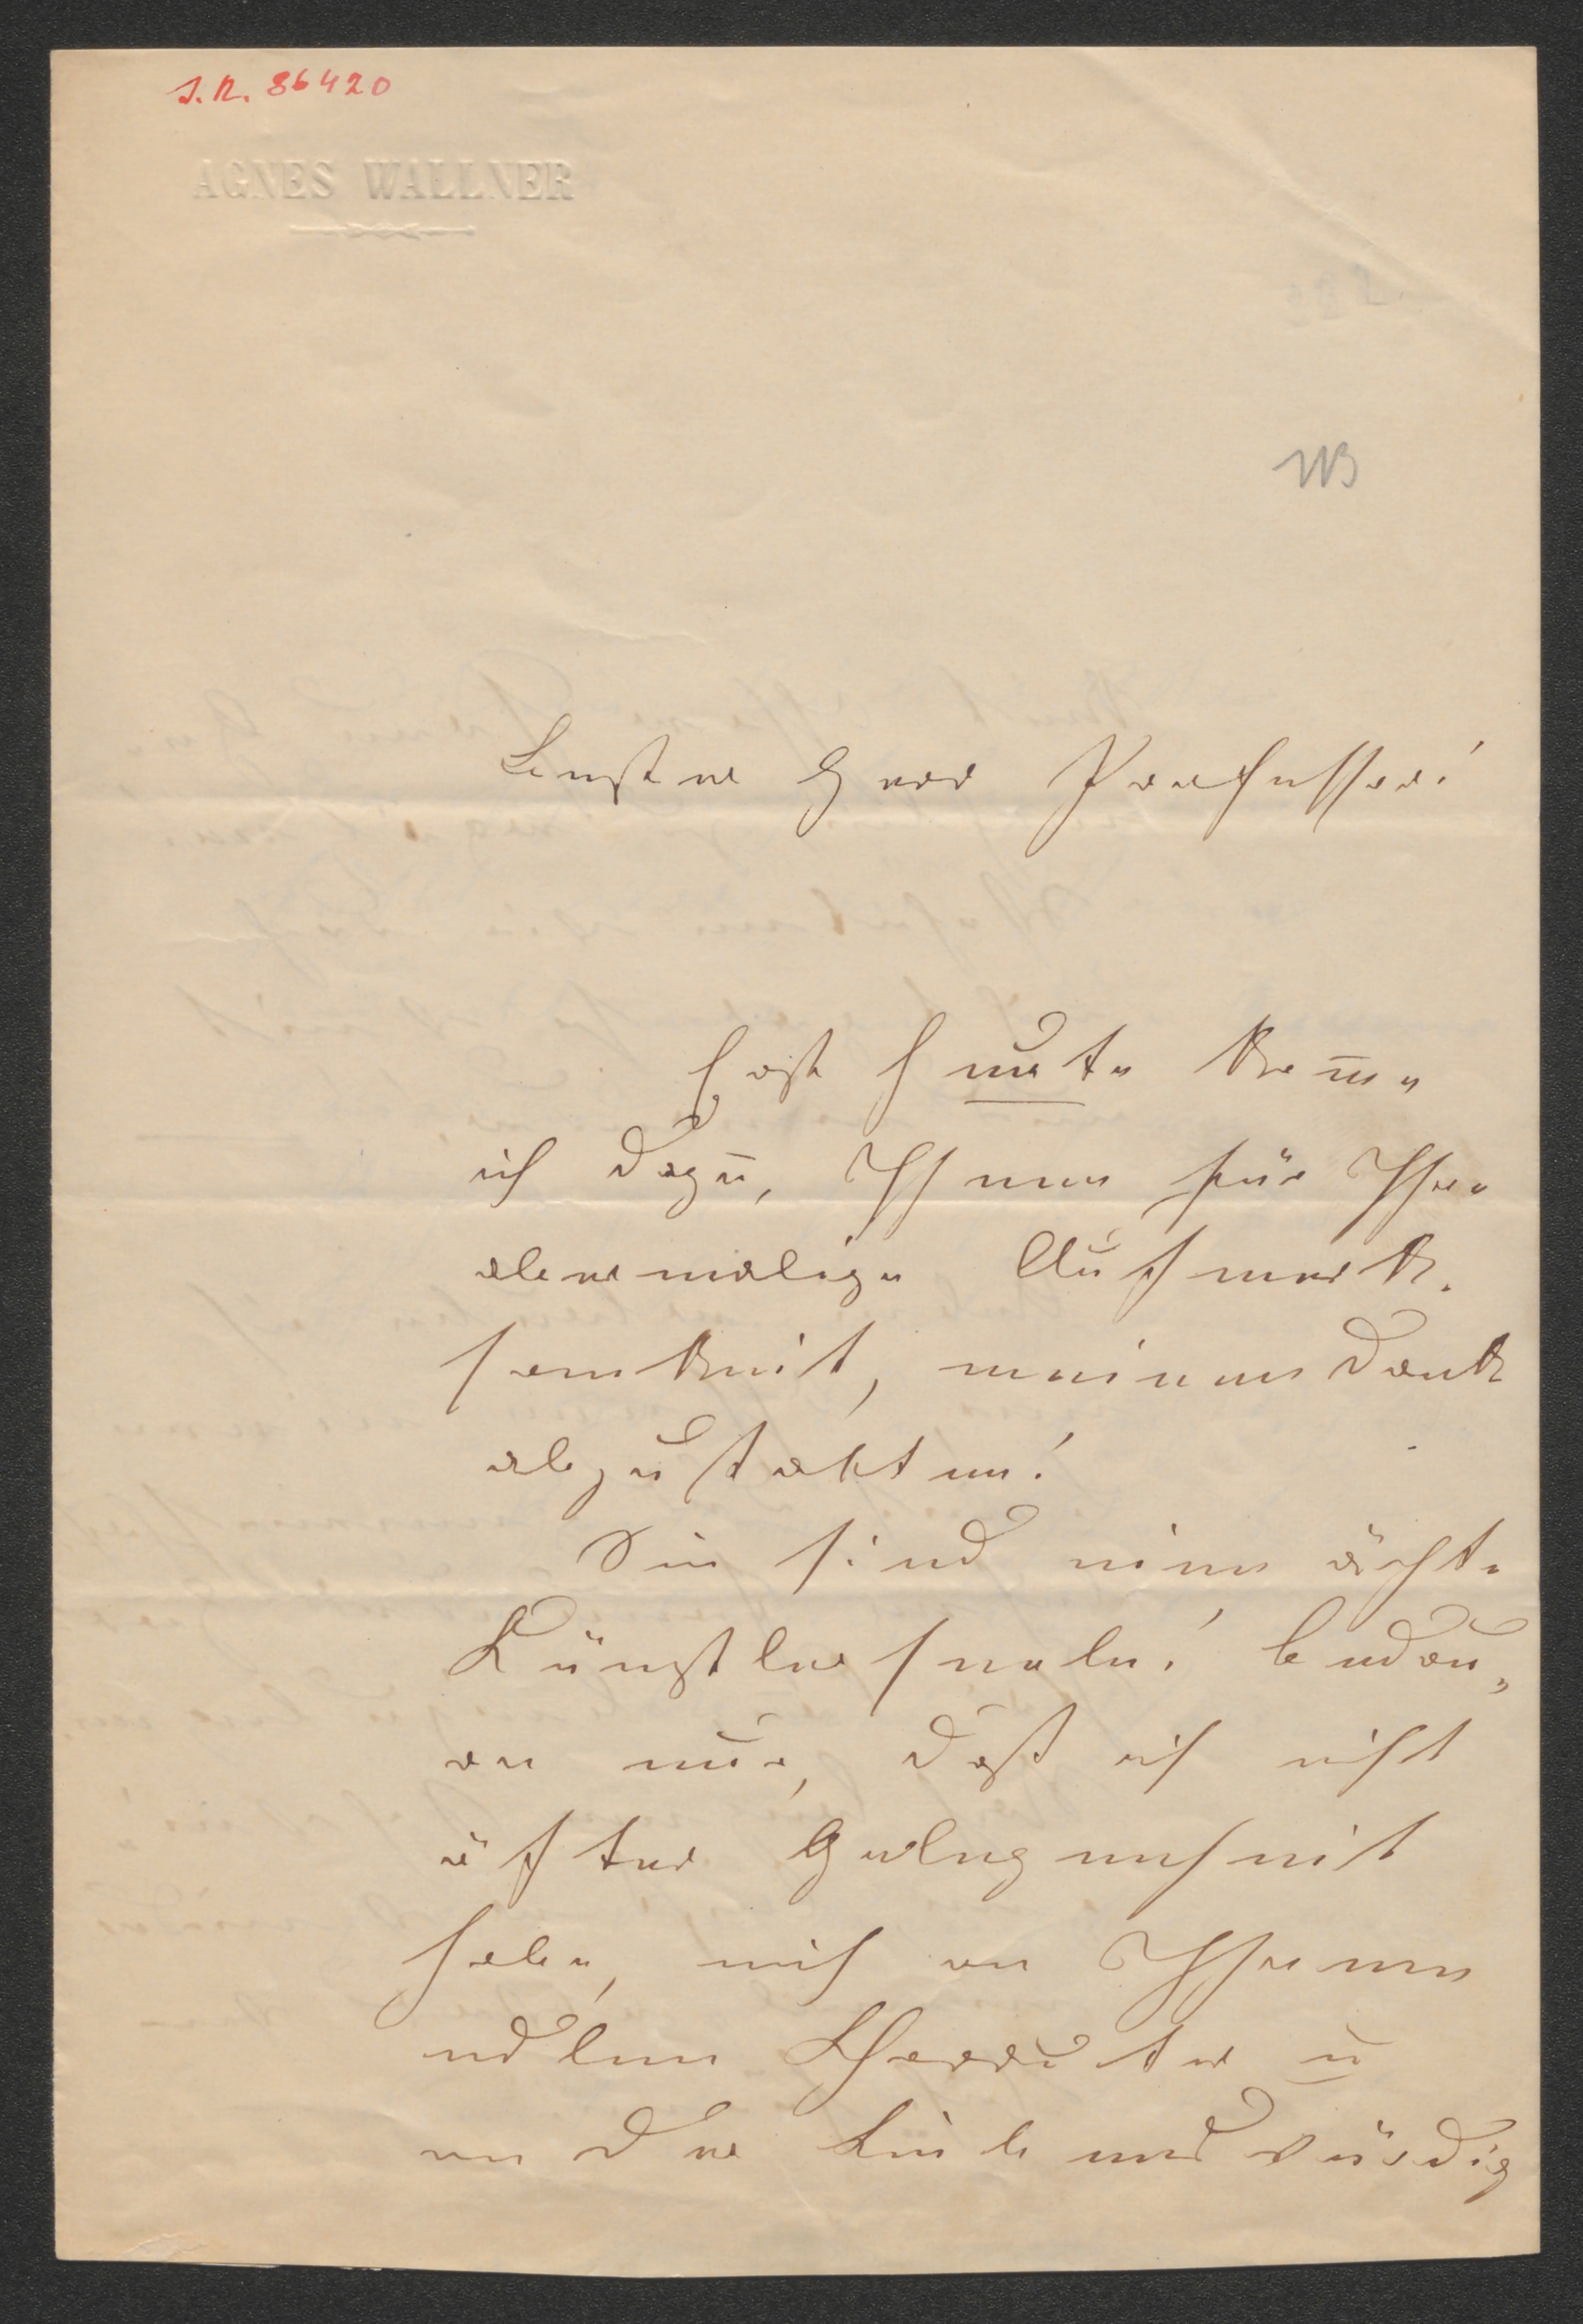 J.N. 86420
AGNES WALLNER
WB
Bester Herr Professor!
Erst heute komme
ich dazu, Ihnen für Ihre
abermalige Aufmerk-
samkeit, meinen Dank
abzustatten!
Sie sind eine ächte
Künstlerseele! bedau-
re nur, daß ich nicht
öfter Gelegenheit
habe, mich an Ihrem
edlen Charakter u
an der Liebenswürdig